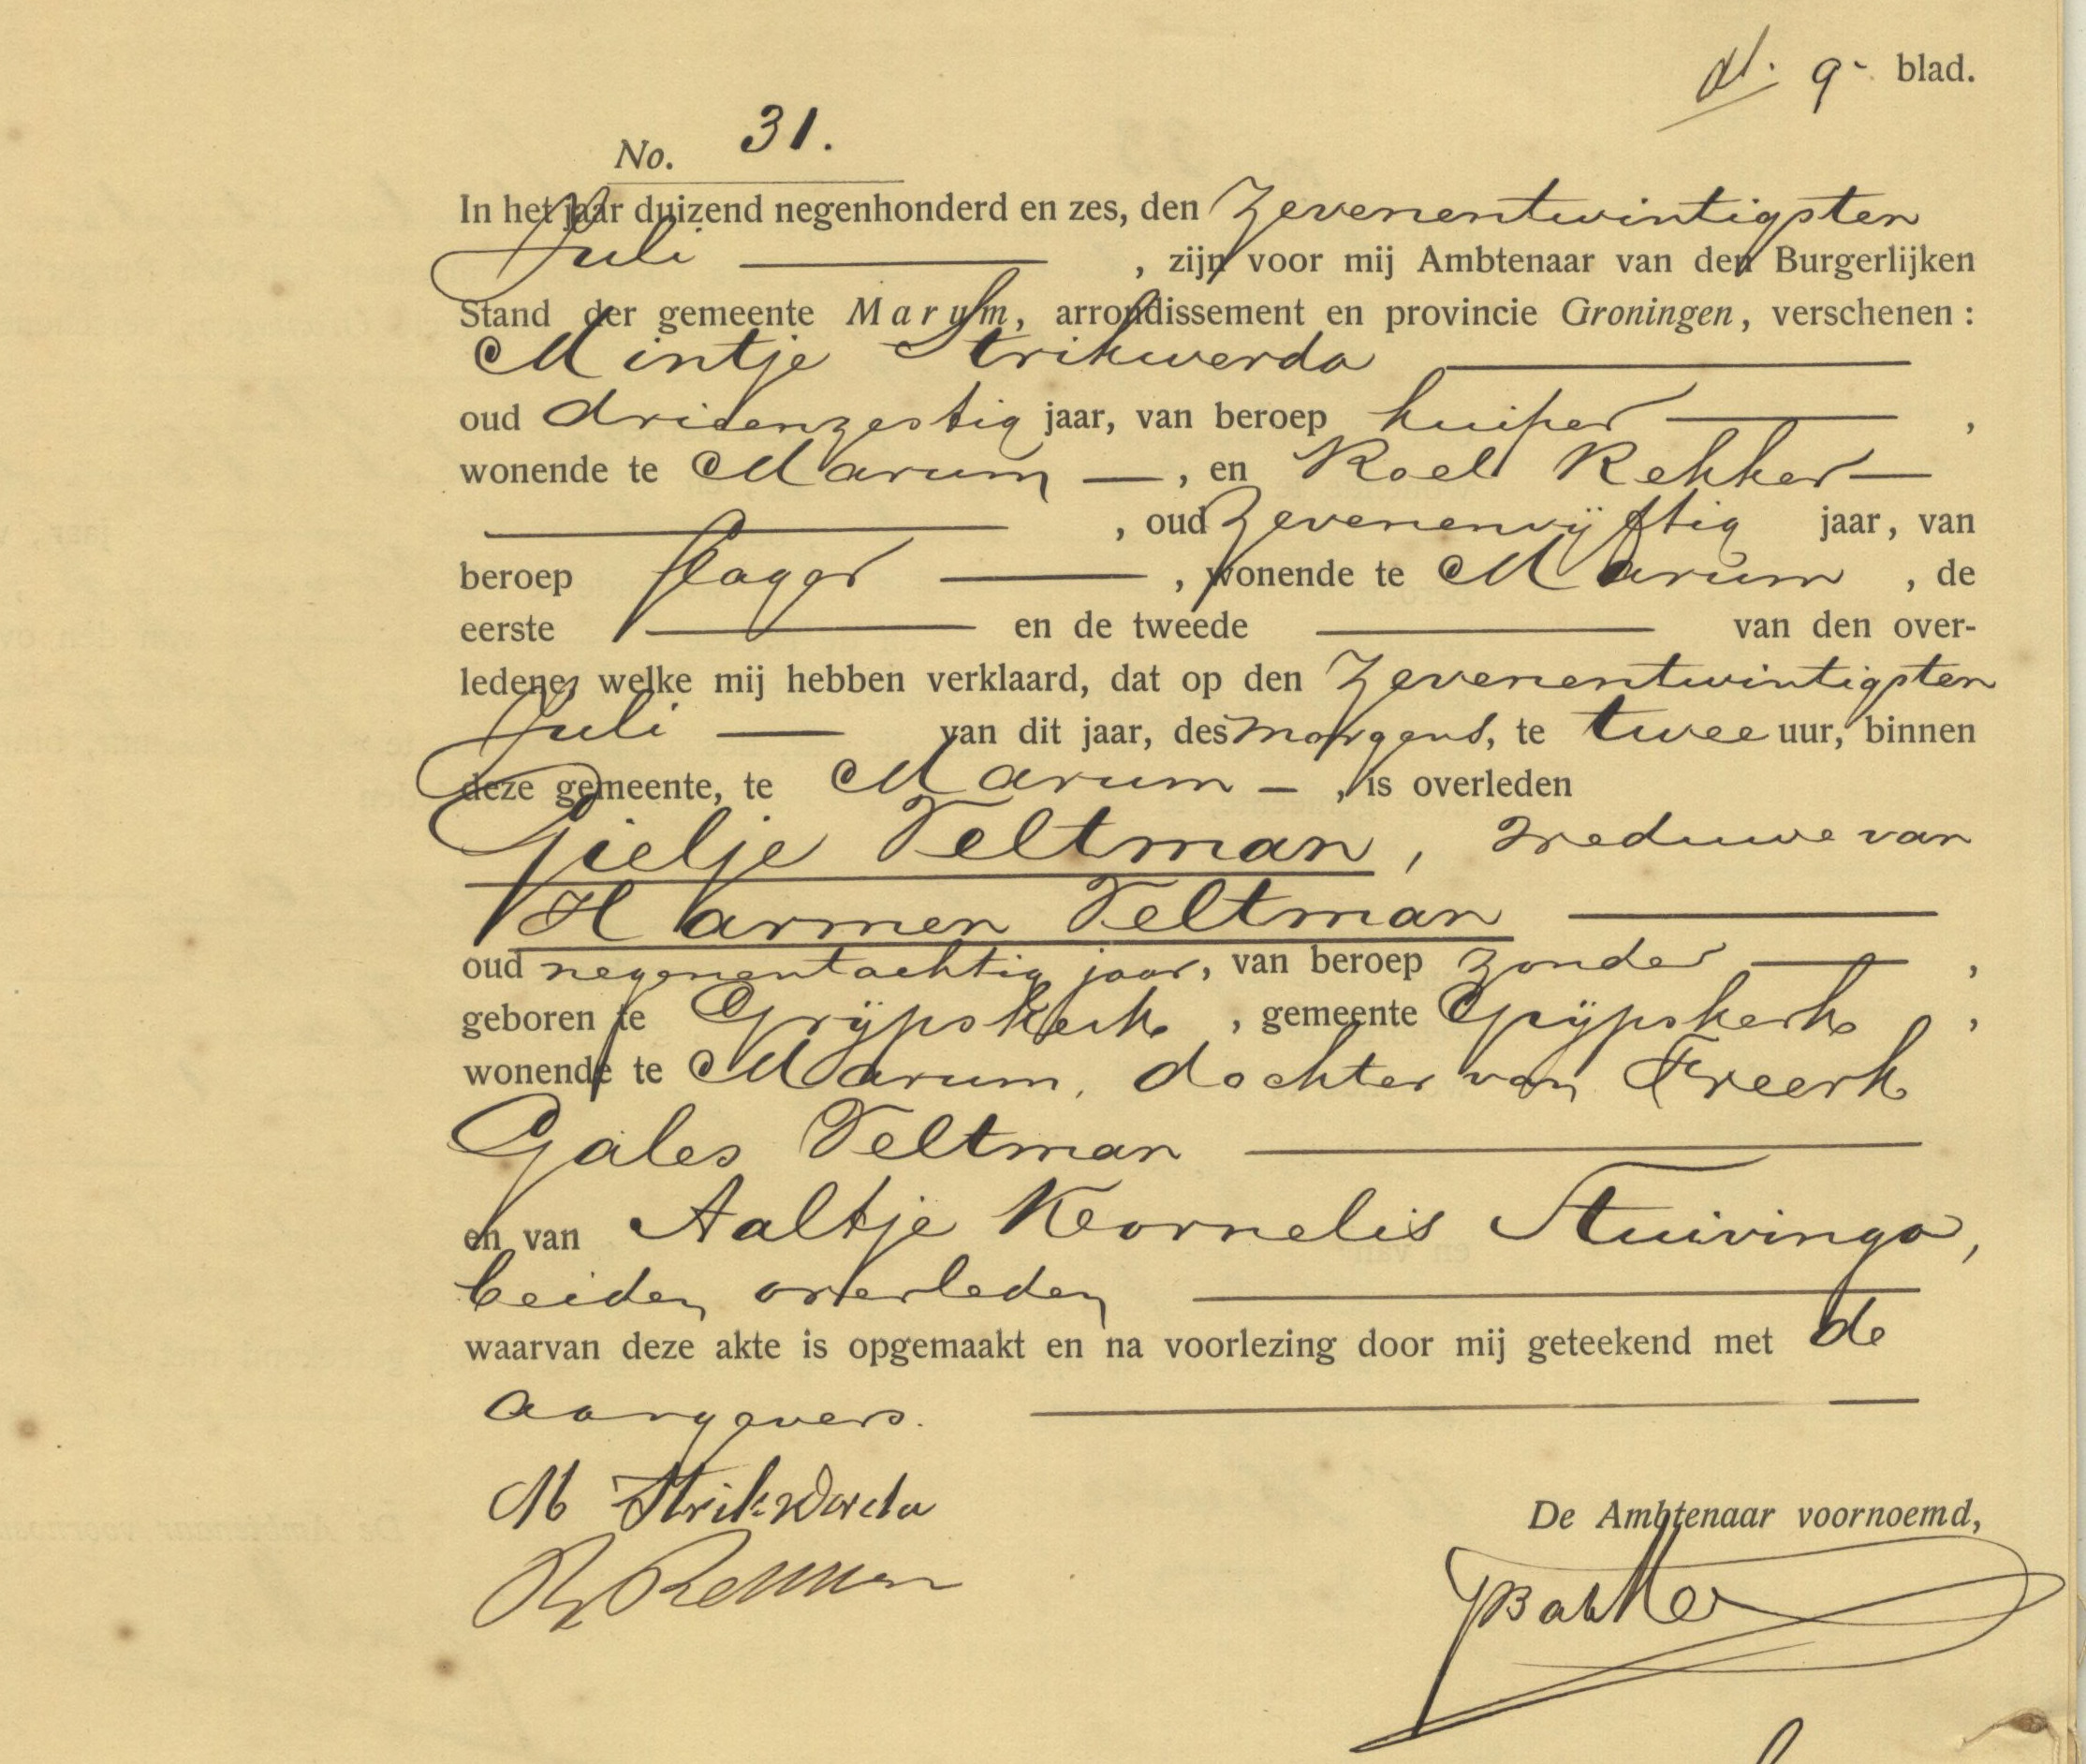 9e blad.
No. 31.
In het jaar duizend negenhonderd en zes, den Zevenentwintigsten
Juli , zijn voor mij Ambtenaar van den Burgerlijken
Stand der gemeente Marum, arrondissement en provincie Groningen, verschenen :
Mintje Strikwerda
oud drieenzestig jaar, van beroep kuiper ,
wonende te Marum — , en Roel Rekker —
, oud Zevenenvijftig jaar, van
beroep slager , wonende te Marum , de
eerste en de tweede van den over-
ledene, welke mij hebben verklaard, dat op den Zevenentwintigsten
Juli — van dit jaar, des morgens, te twee uur, binnen
deze gemeente, te Marum — , is overleden
Gielje Veltman, Weduwe van
Harmen Veltman
oud negenentachtig jaar, van beroep zonder ,
geboren te Grijpskerk , gemeente Grijpskerk ,
wonende te Marum, dochter van Freerk
Gales Veltman
en van Aaltje Kornelis Stuivinga,
beiden overleden
waarvan deze akte is opgemaakt en na voorlezing door mij geteekend met de
aangevers.
M Strikwerda
R Rekker
De Ambtenaar voornoemd,
Bakker